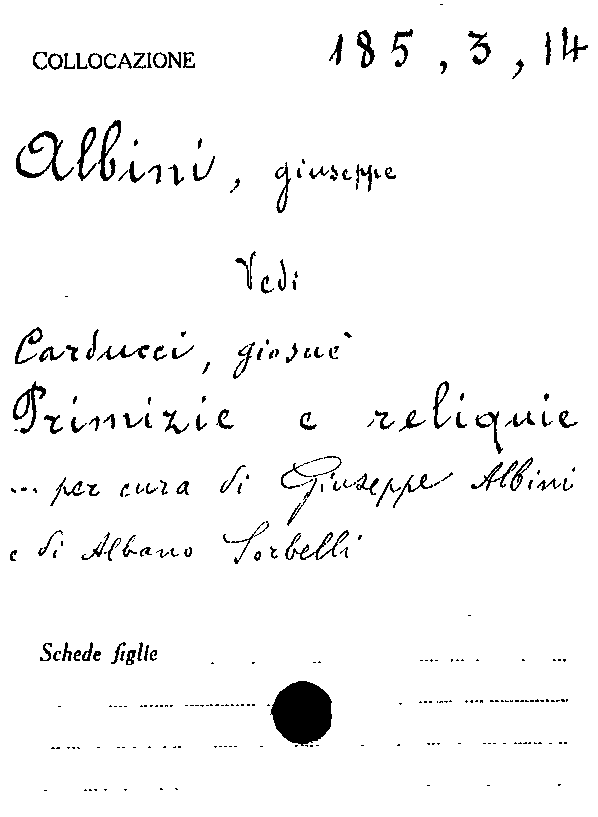 COLLOCAZIONE 185, 3, 14
Albini, giuseppe
Vedi
Carducci, giosuè
Primizie e reliquie
... per cura di Giuseppe Albini
e di Albano Sorbelli
Schede figlie